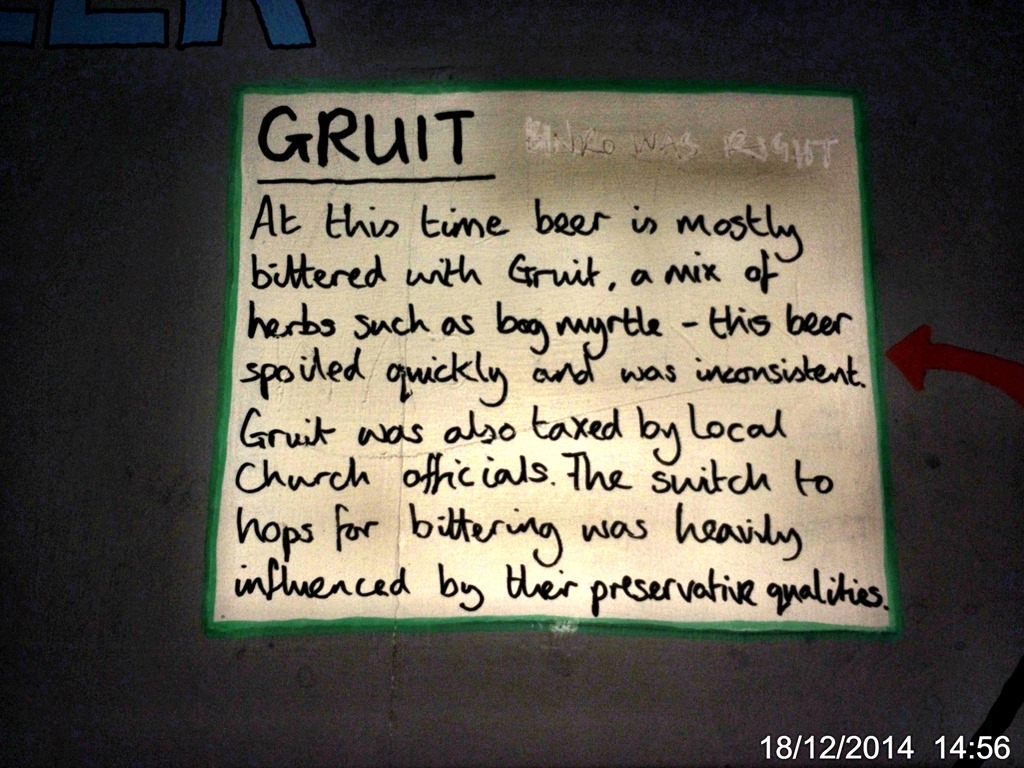 GRUIT
WAS RIGHT
At this time beer is mostly
bittered with Gruit, a mix of
herbs such as bog myrtle - this beer
spoiled quickly and was inconsistent.
Gruit was also taxed by local
Church officials. The switch to
hops for bittering was heavily
influenced by their preservative qualities.
18/12/2014 14:56